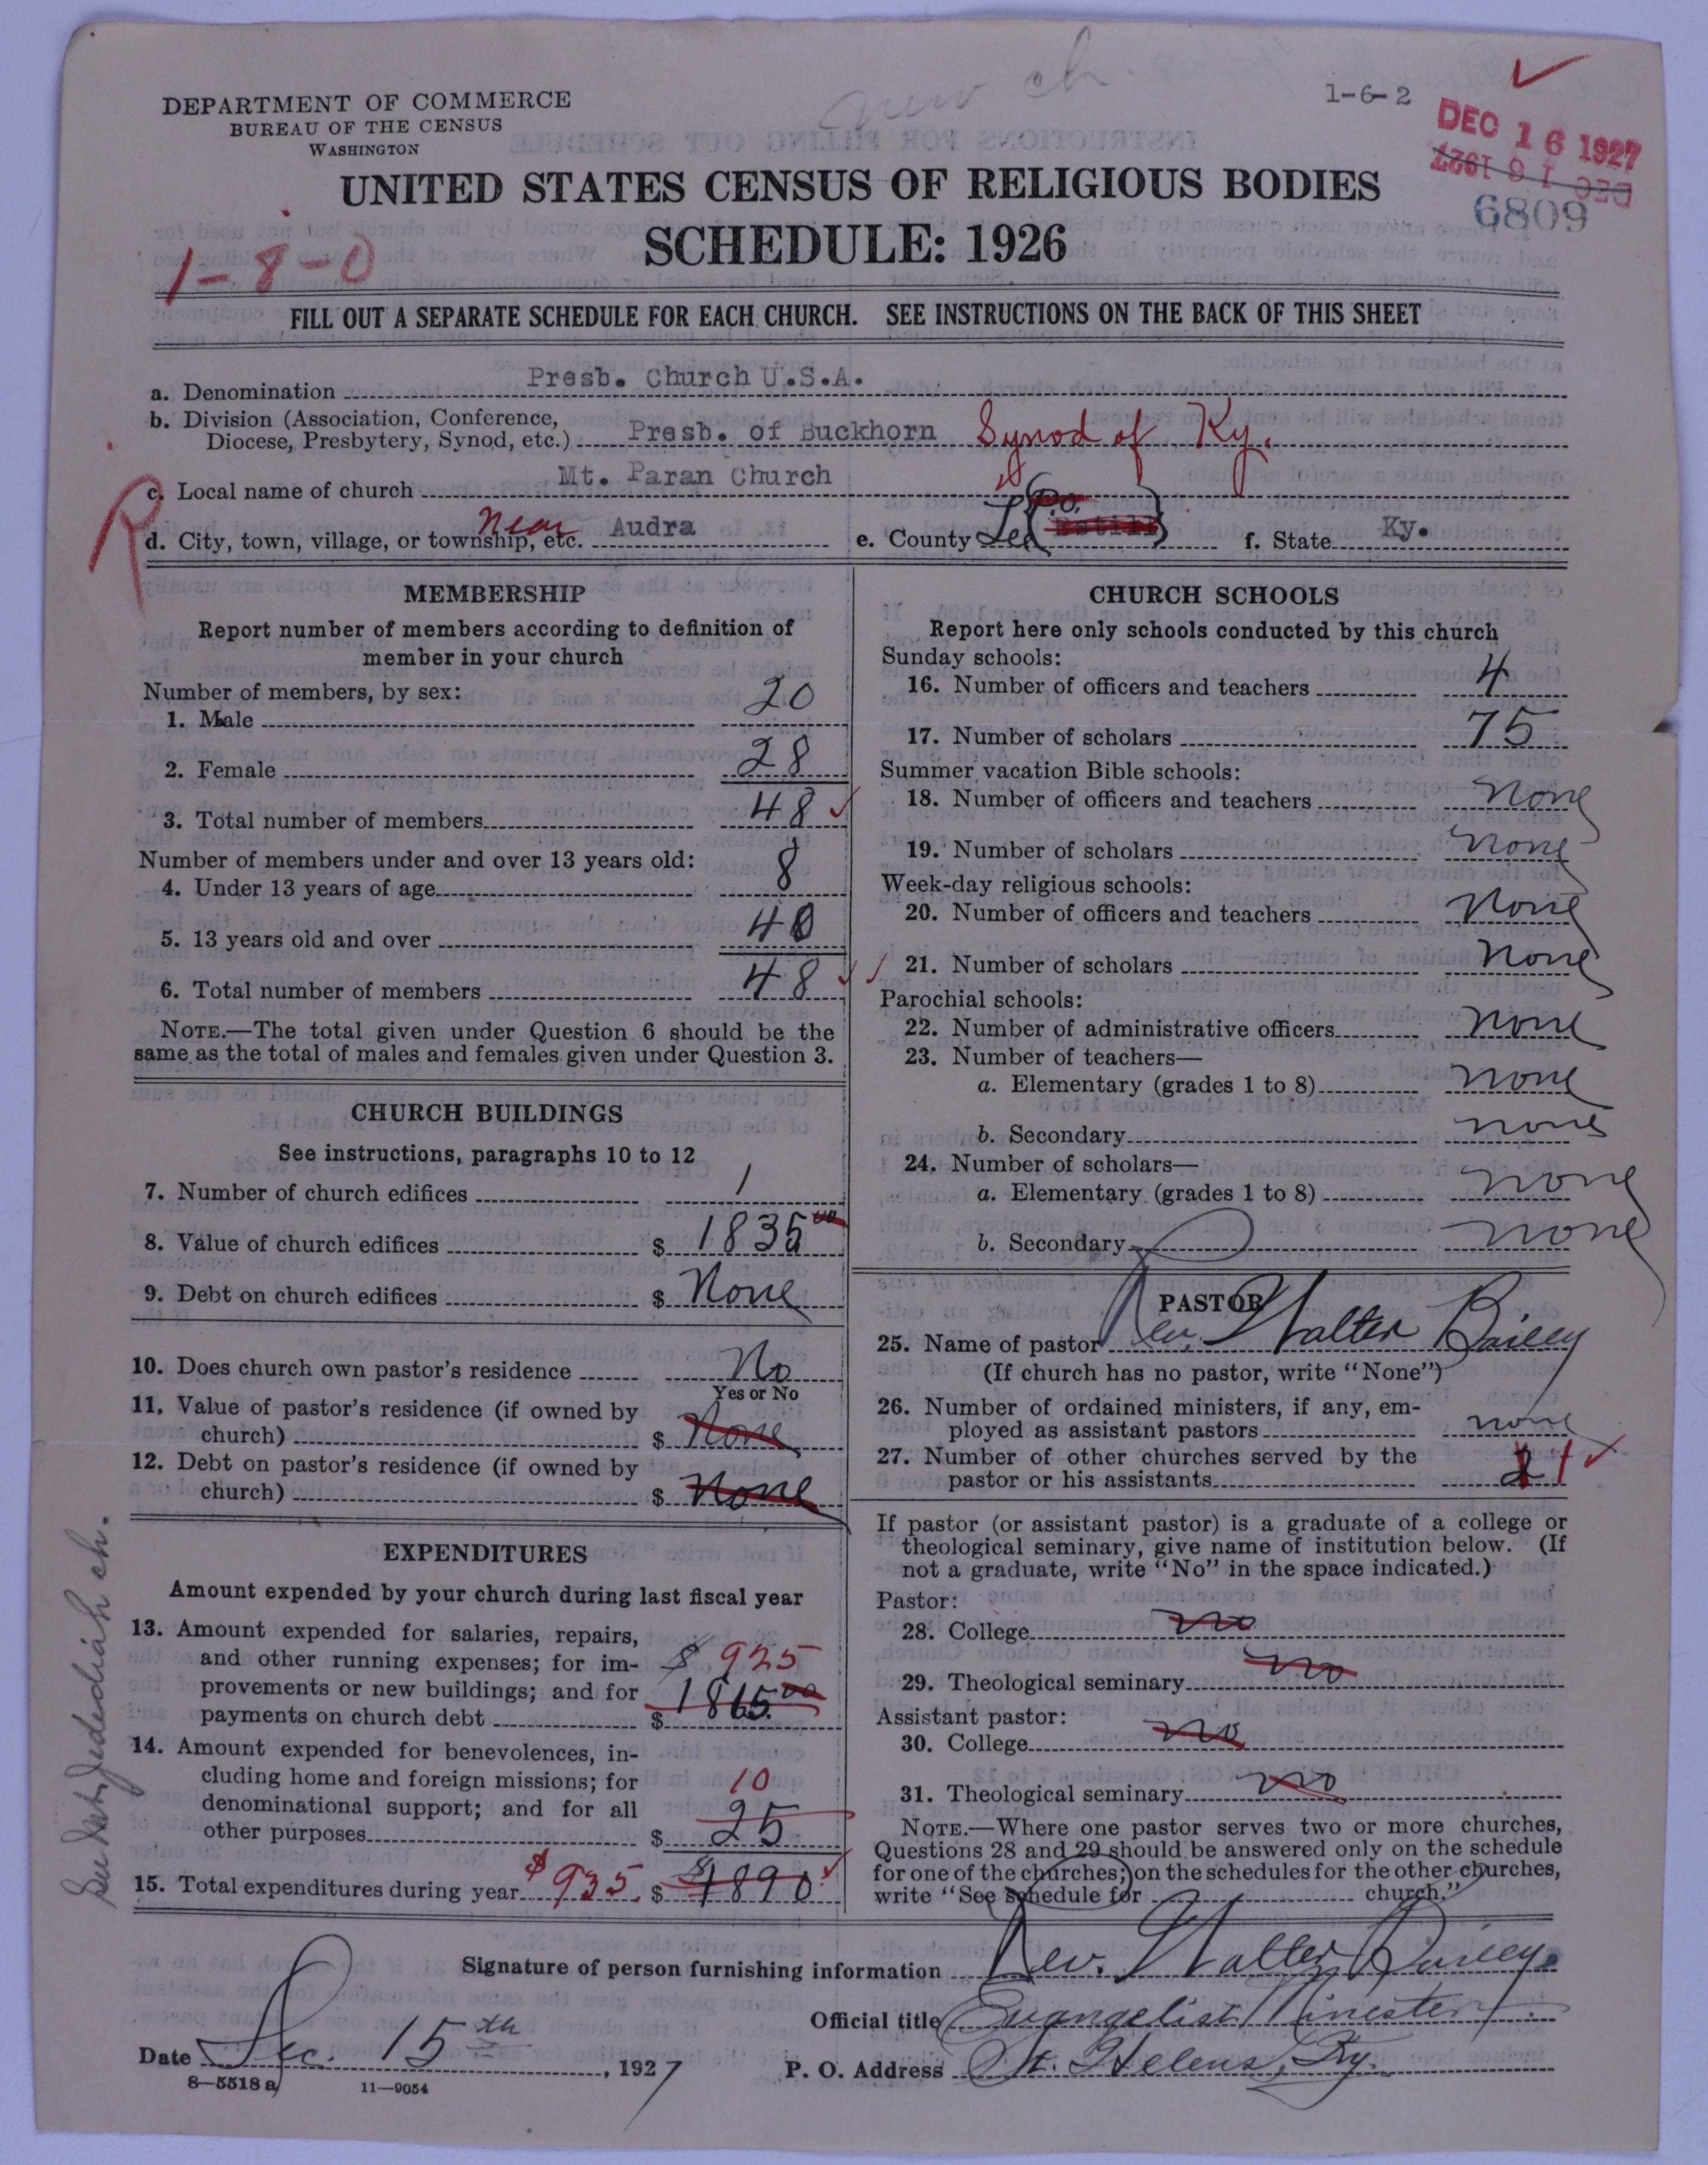 new ch.
1-6-2
DEPARTMENT OF COMMERCE
BUREAU OF THE CENSUS
WASHINGTON
DEC 16 1927
DEC 16 1927
6809
UNITED STATES CENSUS OF RELIGIOUS BODIES
SCHEDULE: 1926
1-8-0
FILL OUT A SEPARATE SCHEDULE FOR EACH CHURCH. SEE INSTRUCTIONS ON THE BACK OF THIS SHEET
a. Denomination Presb. Church U.S.A.
b. Division (Association, Conference,
Diocese, Presbytery, Synod, etc.) Presb. of Buckhorn Synod of Ky.
R
c. Local name of church Mt. Paran Church
d. City, town, village, or township, etc. near Audra e. County Lee (P.O. Estill) f. State Ky.
MEMBERSHIP
Report number of members according to definition of
member in your church
Number of members, by sex:
1. Male 20
2. Female 28
3. Total number of members 48
Number of members under and over 13 years old:
4. Under 13 years of age 8
5. 13 years old and over 40
6. Total number of members 48
NOTE.—The total given under Question 6 should be the
same as the total of males and females given under Question 3.
CHURCH BUILDINGS
See instructions, paragraphs 10 to 12
7. Number of church edifices 1
8. Value of church edifices $ 1835 00
9. Debt on church edifices $ None
10. Does church own pastor's residence No
Yes or No
11. Value of pastor's residence (if owned by
church) $ None
12. Debt on pastor's residence (if owned by
church) $ None
EXPENDITURES
Amount expended by your church during last fiscal year
13. Amount expended for salaries, repairs,
and other running expenses; for im- $ 925
provements or new buildings; and for 1865 00
payments on church debt $
14. Amount expended for benevolences, in-
cluding home and foreign missions; for 10
denominational support; and for all 25
other purposes $
15. Total expenditures during year $935. $ $1890
CHURCH SCHOOLS
Report here only schools conducted by this church
Sunday schools:
16. Number of officers and teachers 4
17. Number of scholars 75
Summer vacation Bible schools:
18. Number of officers and teachers None
19. Number of scholars none
Week-day religious schools:
20. Number of officers and teachers None
21. Number of scholars None
Parochial schools:
22. Number of administrative officers none
23. Number of teachers—
a. Elementary (grades 1 to 8) none
b. Secondary none
24. Number of scholars—
a. Elementary (grades 1 to 8) none
b. Secondary none
PASTOR
25. Name of pastor Rev. Walter Bailey
(If church has no pastor, write "None")
26. Number of ordained ministers, if any, em-
ployed as assistant pastors none
27. Number of other churches served by the
pastor or his assistants 2 1
If pastor (or assistant pastor) is a graduate of a college or
theological seminary, give name of institution below. (If
not a graduate, write "No" in the space indicated.)
Pastor:
28. College no
29. Theological seminary no
Assistant pastor:
30. College no
31. Theological seminary no
NOTE.—Where one pastor serves two or more churches,
Questions 28 and 29 should be answered only on the schedule
for one of the churches; on the schedules for the other churches,
write "See schedule for church."
Signature of person furnishing information Rev. Walter Bailey.
Official title Evangelist Minester
Date Dec. 15th, 1927 P. O. Address St. Helens, Ky.
8—5518 a 11—9054
Jedediah ch.